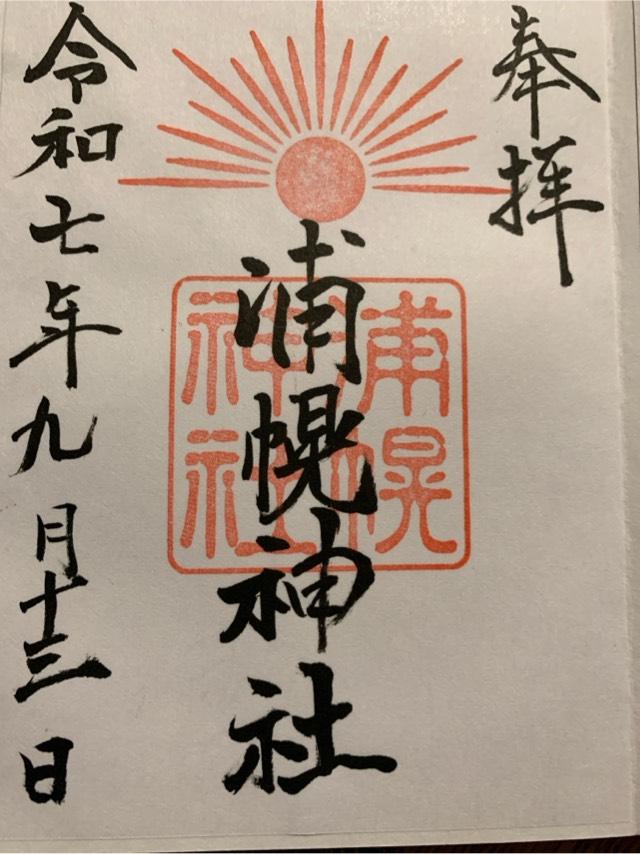 奉拝
浦幌神社
浦幌
神社
令和七年九月十三日